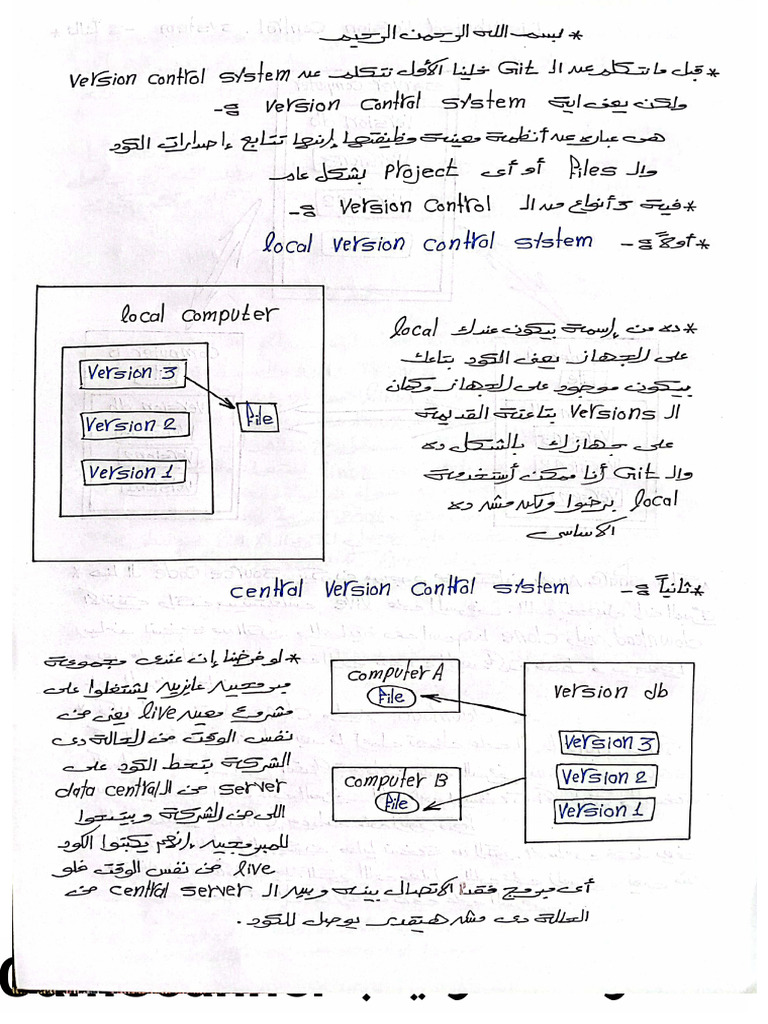 * بسم الله الرحمن الرحيم
* قبل ما نتكلم عن الـ Git خلينا الأول نتكلم عن version control system
ولكن يعنى اية version control system :-
هى عباره عن أنظمة معينة وظيفتها إنها تتابع إصدارات الكود
والـ files أو أى project بشكل عام
* فية 3 أنواع من الـ version control :-
* أولاً :- local version control system
local computer
version 3
version 2
version 1
file
* ده من إسمة بيكون عندك local
على الجهاز يعنى الكود بتاعك
بيكون موجود على الجهاز وكمان
الـ versions بتاعتة القديمة
على جهازك بالشكل ده
والـ Git أنا ممكن أستخدمة
local برضوا ولكن مش ده
الاساسى
* ثانياً :- central version control system
* لو فرضنا إن عندى مجموعة
مبرمجين عايزين يشتغلوا على
مشروع معين live يعنى فى
نفس الوقت فى الحالة دى
الشركة بتحط الكود على
server فى الـ data central
اللى فى الشركة وبيتيحوا
للمبرمجين إنهم يكتبوا الكود
live فى نفس الوقت فلو
أى مبرمج فقد الاتصال بينة وبين الـ central server فى
الحالة دى مش هيقدر يوصل للكود.
computer A
file
computer B
file
version db
version 3
version 2
version 1